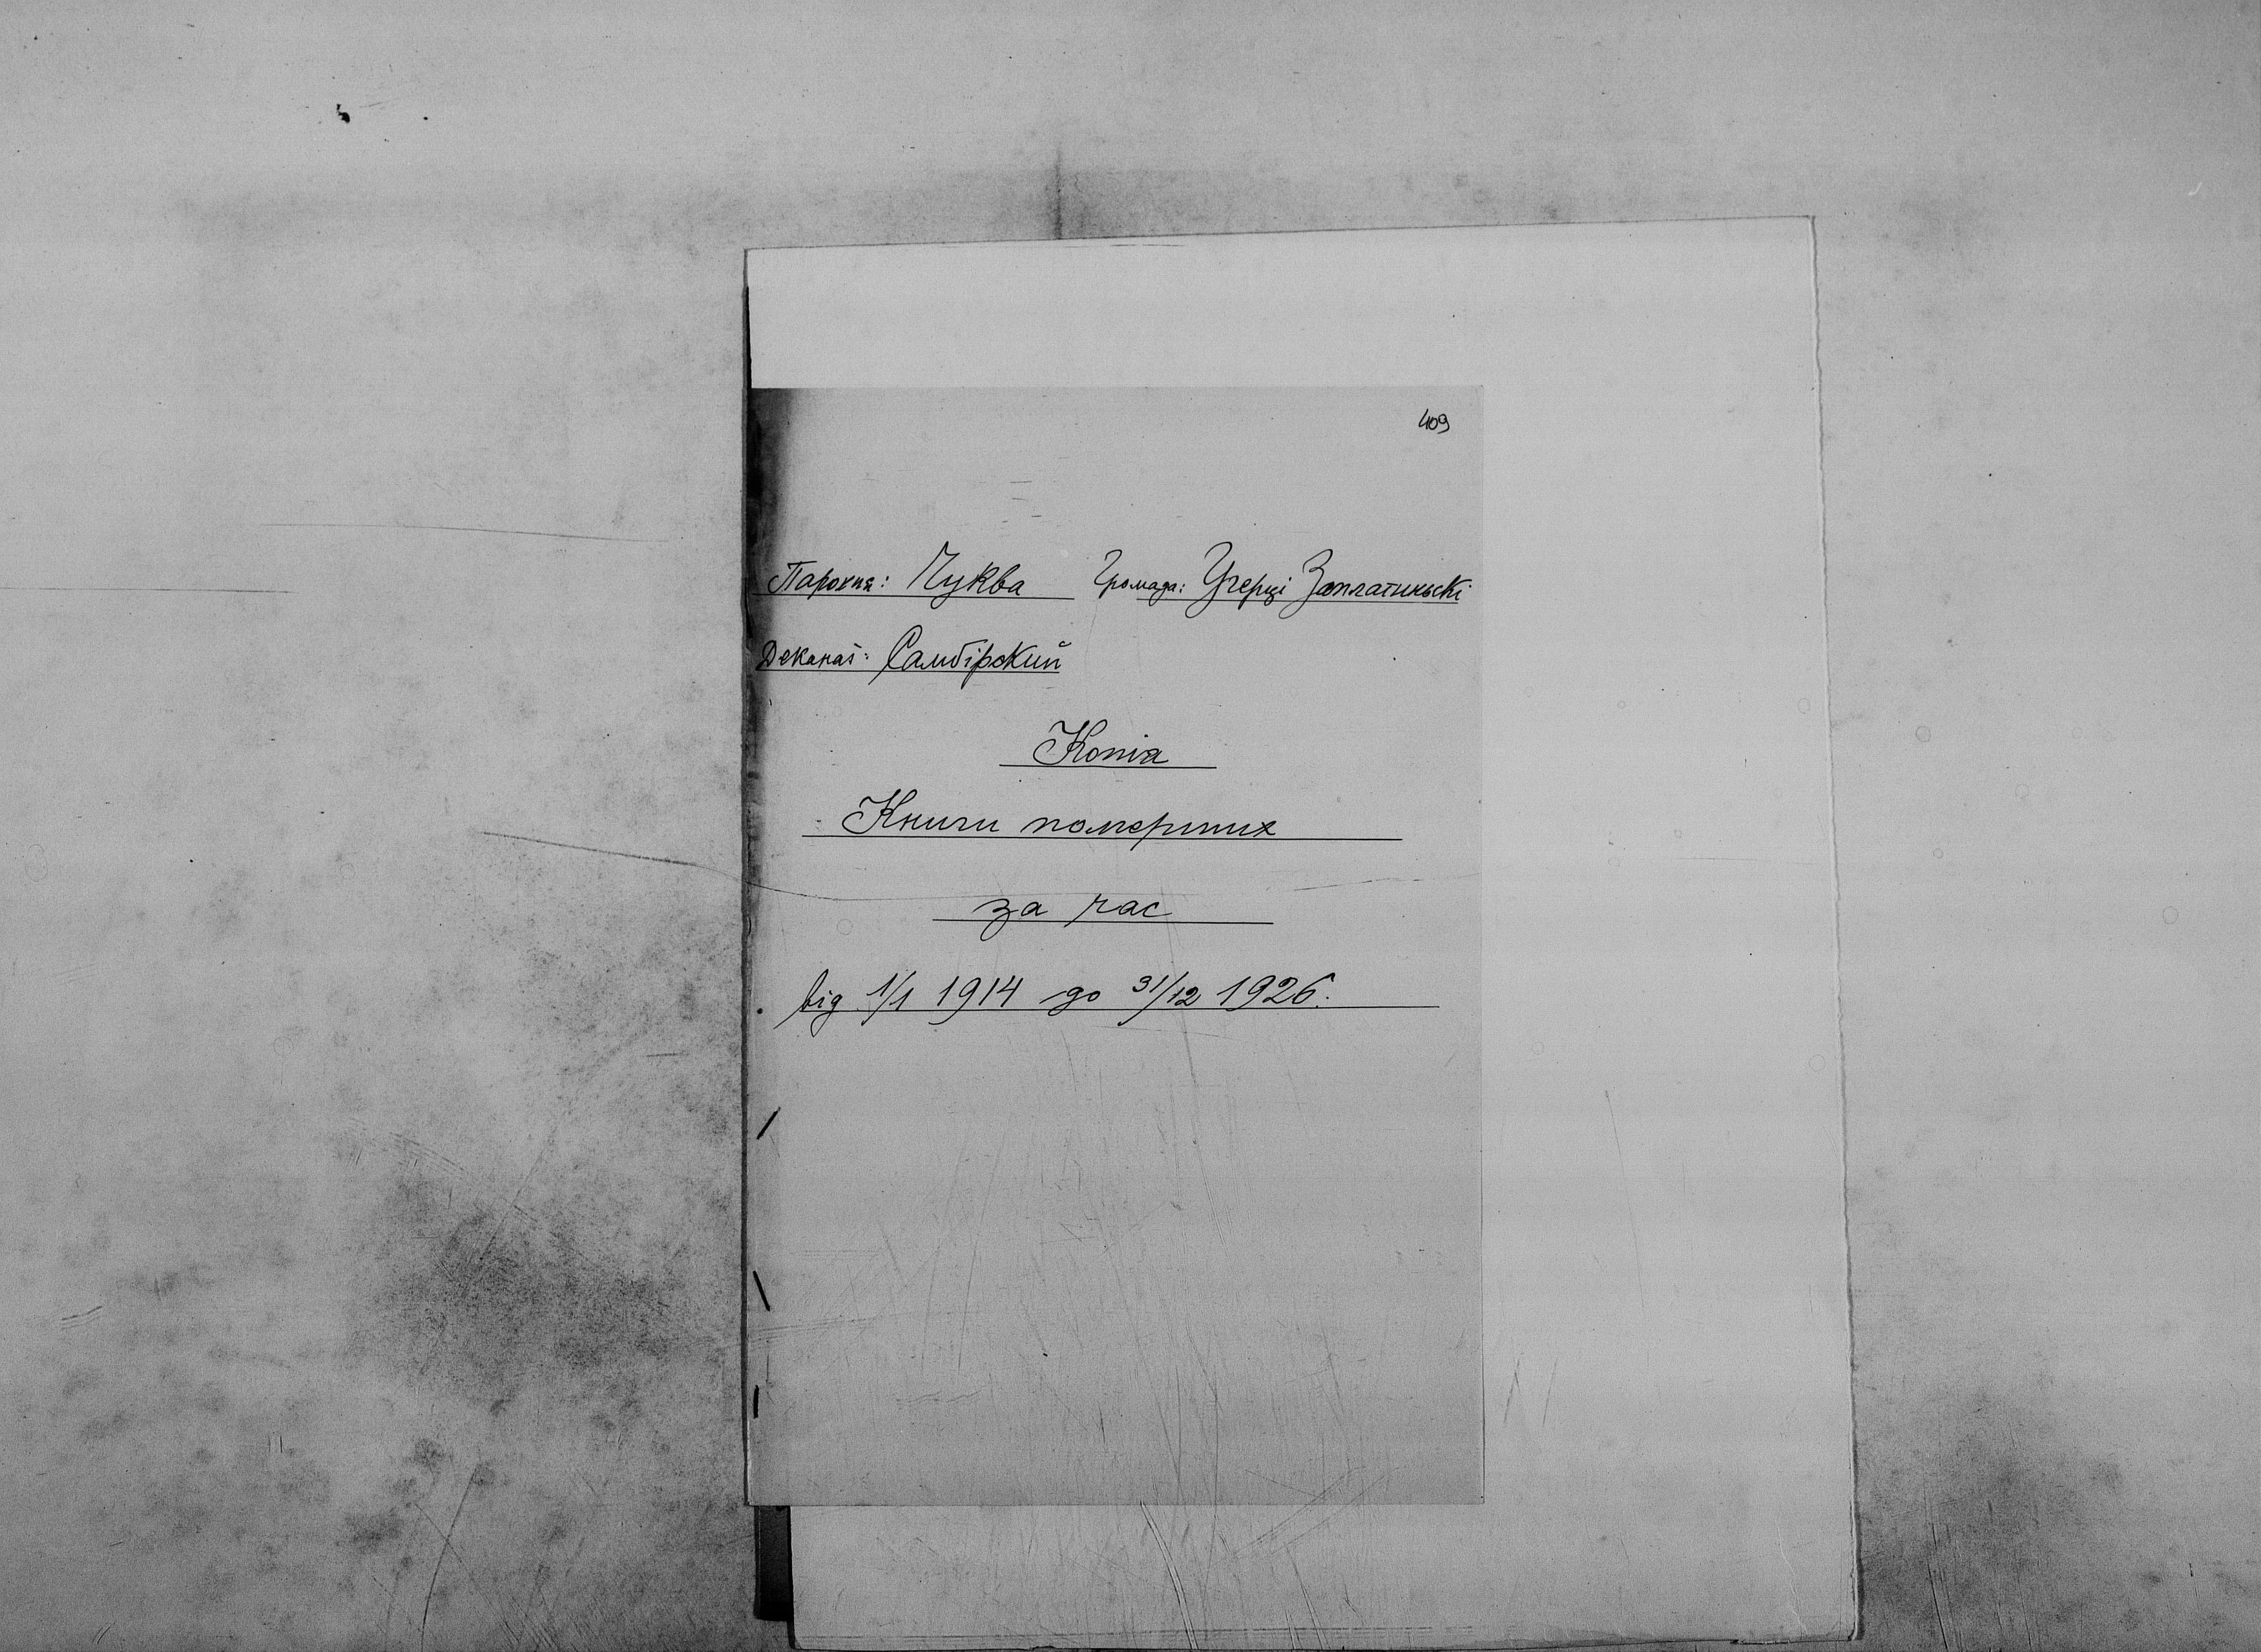 409
Парохия: Чуква Громада: Угерці Заплатиньскі
Деканат: Самбірский
Копія
Книги померших
за час
від 1/1 1914 до 31/12 1926.